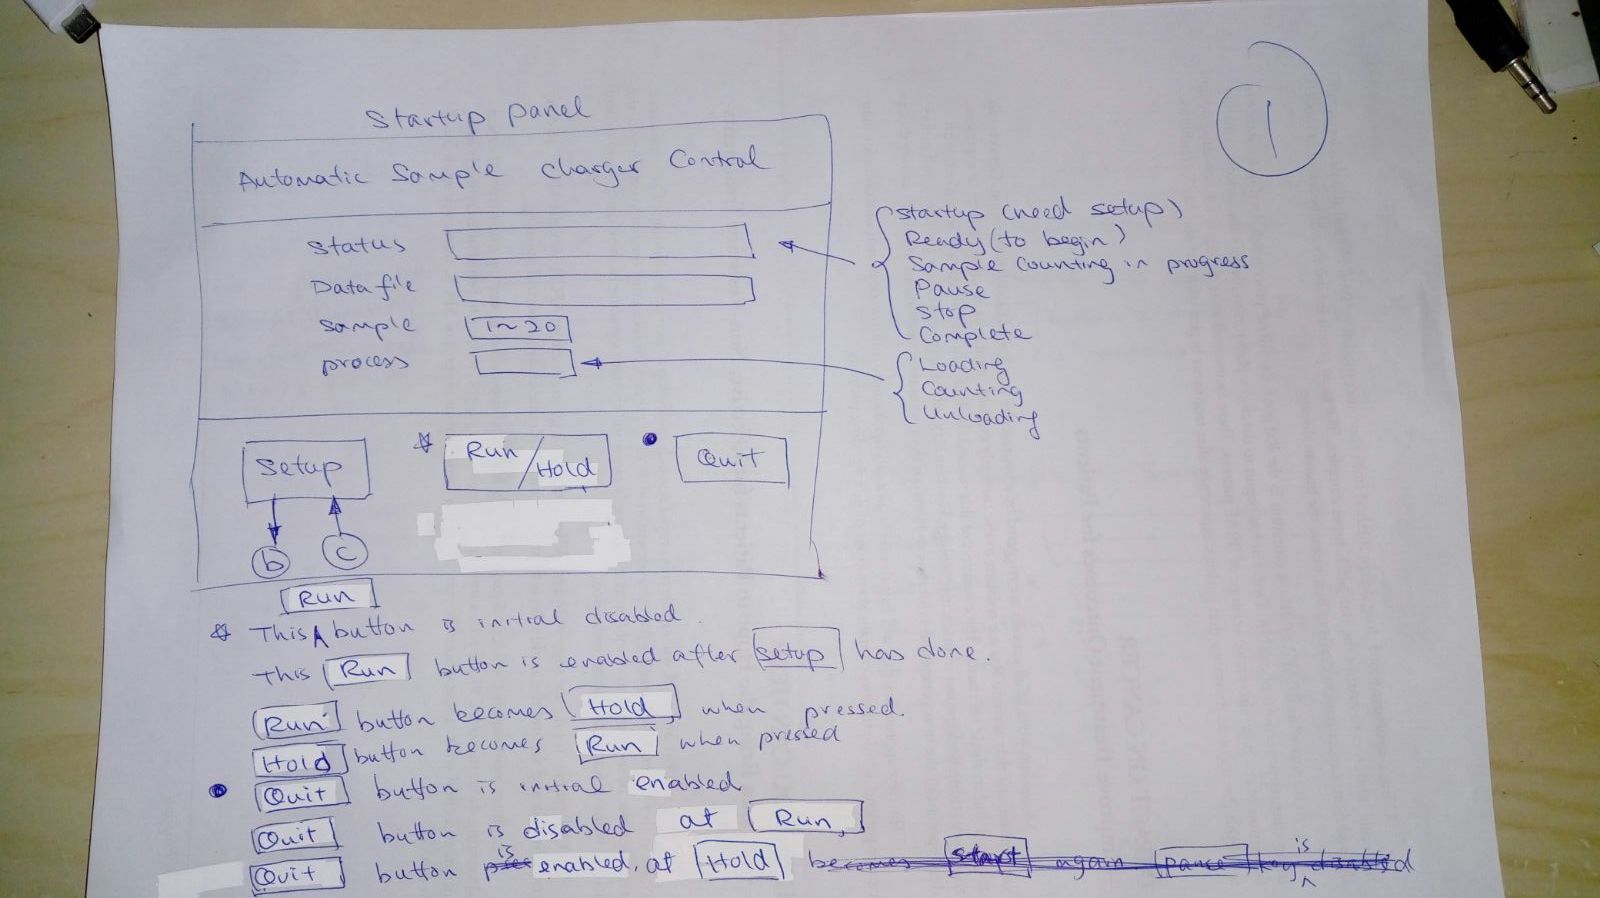 1
Startup panel
Automatic Sample Charger Control
Status
Data file
Sample 1~20
process
startup (need setup)
Ready (to begin)
Sample Counting in progress
Pause
Stop
Complete
Loading
Counting
Unloading
Setup
☆ Run / Hold
● Quit
b c
Run
☆ This ∧ button is initial disabled.
This Run button is enabled after setup has done.
Run button becomes Hold, when pressed.
Hold button becomes Run when pressed
● Quit button is initial enabled
Quit button is disabled at Run,
Quit button is enabled. at Hold becomes start again pause key is disabled